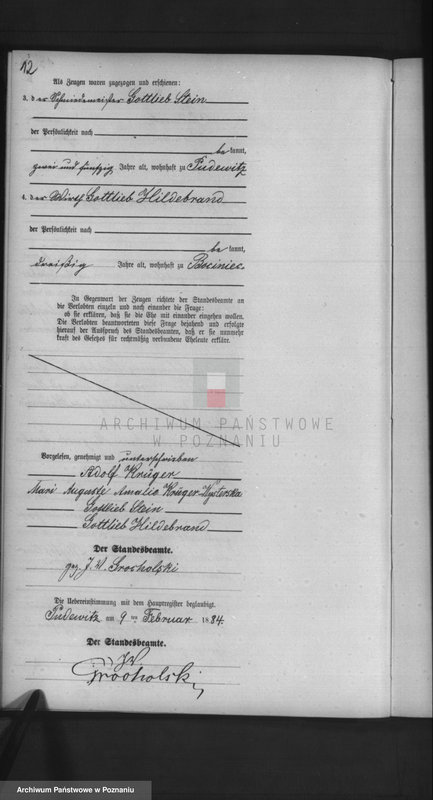 12
Als Zeugen waren zugezogen und erschienen:
3. der Schmiedemeister Gottlieb Stein
der Persönlichkeit nach
bekannt,
zwei und fünfzig Jahre alt, wohnhaft zu Pudewitz
4. der Wirth Gottlieb Hildebrand
der Persönlichkeit nach
bekannt,
dreißig Jahre alt, wohnhaft zu Bociniec
In Gegenwart der Zeugen richtete der Standesbeamte an
die Verlobten einzeln und nach einander die Frage:
ob sie erklären, daß sie die Ehe mit einander eingehen wollen.
Die Verlobten beantworteten diese Frage bejahend und erfolgte
hierauf der Ausspruch des Standesbeamten, daß er sie nunmehr
kraft des Gesetzes für rechtmäßig verbundene Eheleute erkläre.
ARCHIWUM PAŃSTWOWE
W POZNANIU
Vorgelesen, genehmigt und unterschrieben
Adolf Krüger
Mari Auguste Amalie Krüger
Gottlieb Stein
Gottlieb Hildebrand
Der Standesbeamte.
gez. J. V. Grocholski
Die Uebereinstimmung mit dem Hauptregister beglaubigt.
Pudewitz am 9 ten Februar 1884.
Der Standesbeamte.
J V
Grocholski
Archiwum Państwowe w Poznaniu